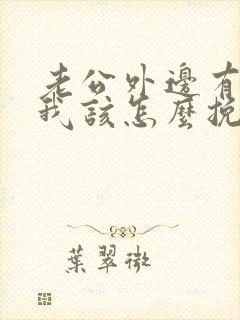 老公外邊有
我該怎麼挽
葉翠微